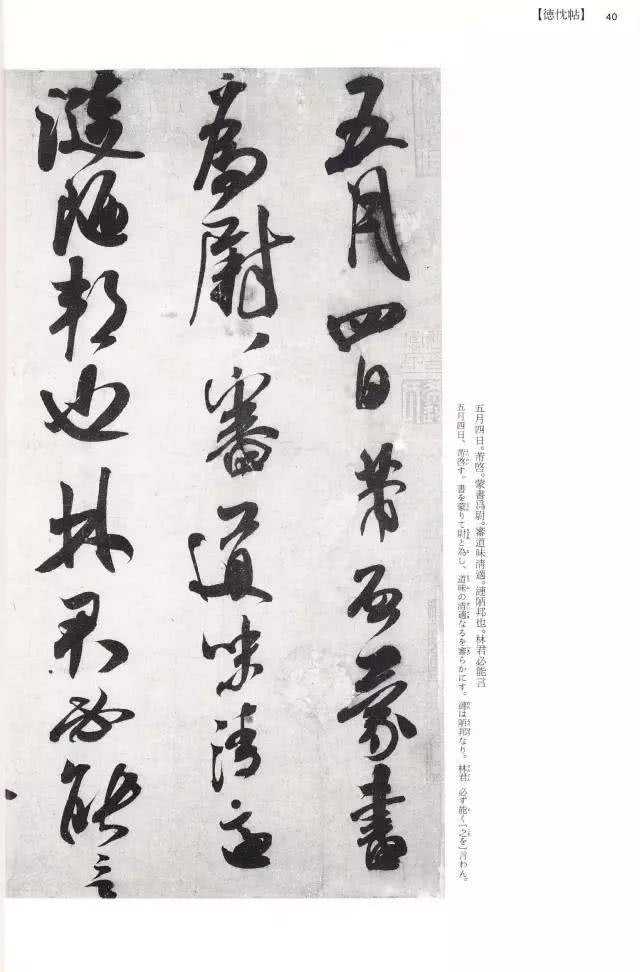 【徳忱帖】 40
五月四日芾啓蒙書
為尉〻審道味清適
漣陋邦也林君必能言
五月四日。芾啓。蒙書爲尉。審道味清適。漣陋邦也。林君必能言
五月四日、芾啓す。書を蒙りて尉と為し、道味の清適なるを審らかにす。漣は陋邦なり。林君 必ず能く〔之を〕言わん。